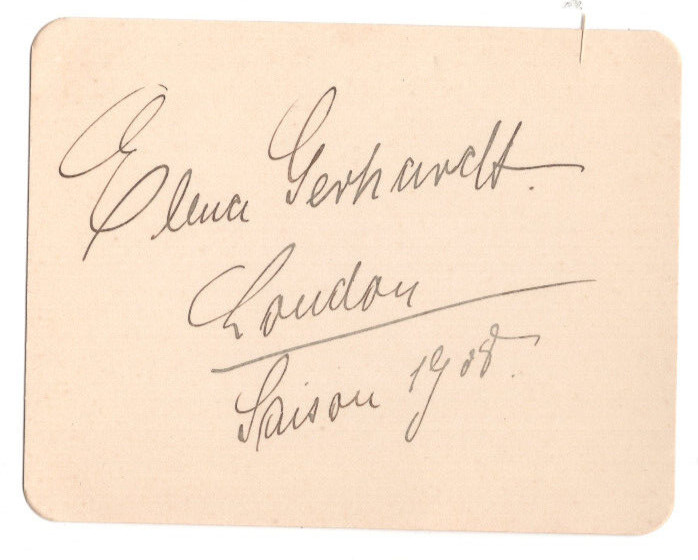 Elena Gerhardt.
London
Saison 1908.